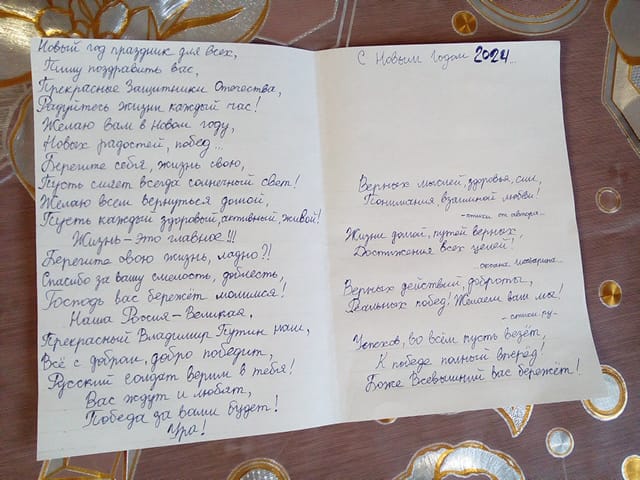 Новый год праздник для всех,
Пишу поздравить вас,
Прекрасные Защитники Отечества,
Радуйтесь жизни каждый час!
Желаю вам в Новом году,
Новых радостей, побед...
Берегите себя, жизнь свою,
Пусть сияет всегда солнечный свет!
Желаю всем вернуться домой,
Пусть каждый здоровый, активный, живой!
Жизнь – это главное!!!
Берегите свою жизнь, ладно?!
Спасибо за вашу смелость, доблесть,
Господь вас бережёт молимся!
Наша Россия – Великая,
Прекрасный Владимир Путин наш,
Всё с добром, добро победит,
Русский солдат верим в тебя!
Вас ждут и любят,
Победа за вами будет!
Ура!
С Новым годом 2024...
Верных мыслей, здоровья, сил,
Понимания, взаимной любви!
-стихи от автора...
Жизни долгой, путей верных,
Достижения всех целей!
Верных действий, доброты,
Реальных побед! Желаем вам мы!
-стихи ру-
Успехов, во всём пусть везёт,
К победе полный вперёд!
Боже Всевышний вас бережёт!